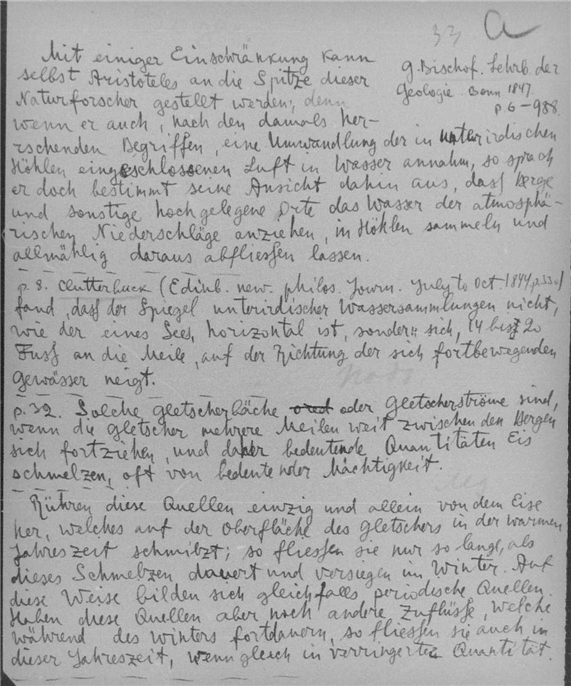 33 a
Mit einiger Einschränkung kann
selbst Aristoteles an die Spitze dieser
Naturforscher gestellt werden, denn
wenn er auch, nach den damals her-
rschenden Begriffen, eine Umwandlung der in unterirdischen
Höhlen eingeschlossenen Luft in Wasser annahm, so sprach
er doch bestimmt seine Ansicht dahin aus, dass Berge
und sonstige hochgelegene Orte das Wasser der atmosphä-
rischen Niederschläge anziehen, in Höhlen sammeln und
allmählig daraus abfliessen lassen.
G. Bischof. Lehrb. der
Geologie. Bonn 1847.
p 6-988
p. 8. Clutterbuck (Edinb. new. philos. Journ. July to Oct 1844, p.
fand, dass der Spiegel unterirdischer Wassersammlungen nicht,
wie der eines Sees, horizontal ist, sondern sich, 14 bis 20
Fuss an die Meile, auf der Richtung der sich fortbewegenden
Gewässer neigt.
p. 32. Solche Gletscherbäche oder Gletscherströme sind,
wenn die Gletscher mehrere Meilen weit zwischen den Bergen
sich fortziehen, und daher bedeutende Quantitäten Eis
schmelzen, oft von bedeutender Mächtigkeit.
Rühren diese Quellen einzig und allein von dem Eise
her, welches auf der Oberfläche des Gletschers in der warmen
Jahreszeit schmilzt; so fliessen sie nur so lange, als
dieses Schmelzen dauert und versiegen im Winter. Auf
diese Weise bilden sich gleichfalls periodische Quellen.
Haben diese Quellen aber noch andere Zuflüsse, welche
während des Winters fortdauern, so fliessen sie auch in
dieser Jahreszeit, wenn gleich in verringerter Quantität.